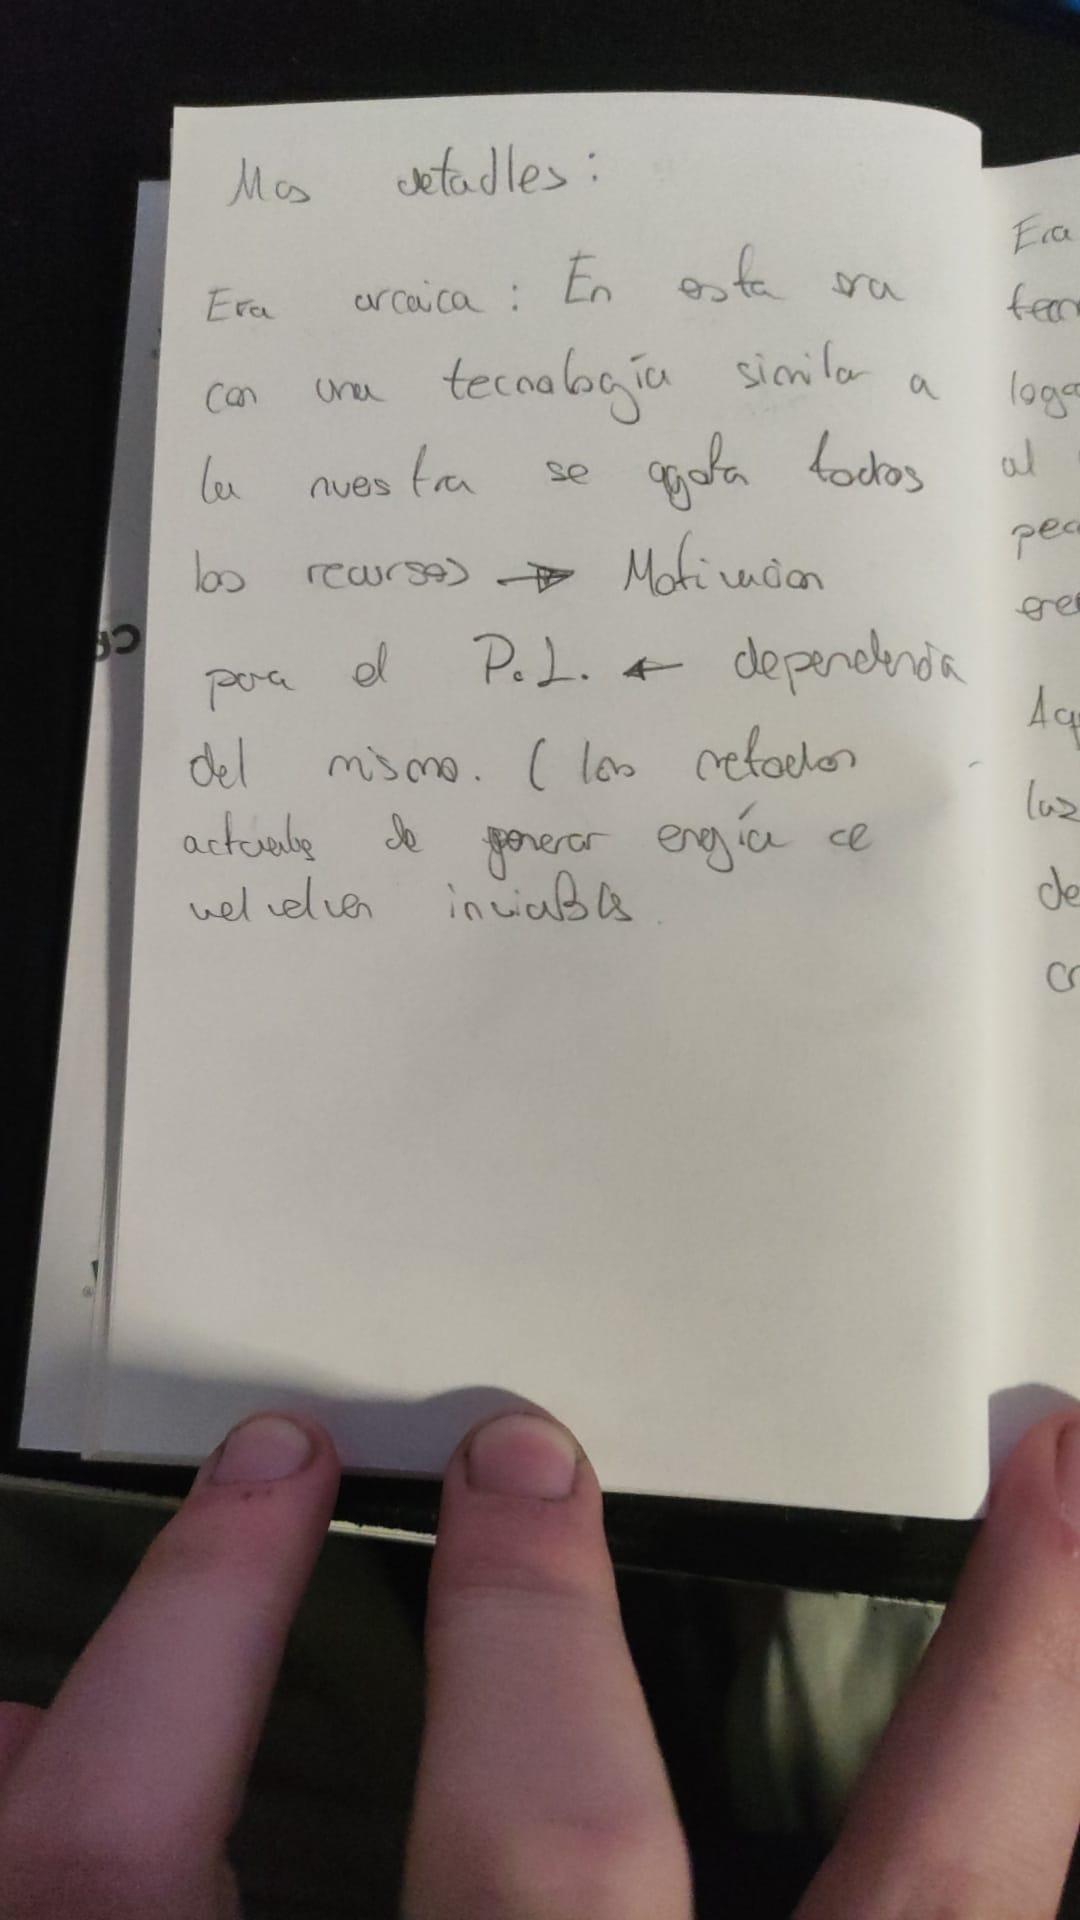 Mas detadles:
Era arcaica: En esta era
con una tecnología similar a
la nuestra se agota todos
los recursos → Motivacion
para el P.L. ← dependencia
del mismo. ( los
actuales de generar engía ce
velvelven inviables.
Era
al
luz
de